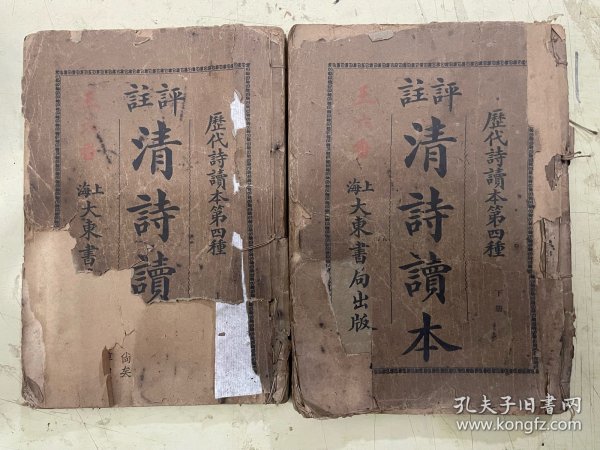 歷代詩讀本第四種
評註
清詩讀
上海大東書
尙矣
歷代詩讀本第四種
下冊
評註
清詩讀本
上海大東書局出版
孔夫子旧书网
www.kongfz.com